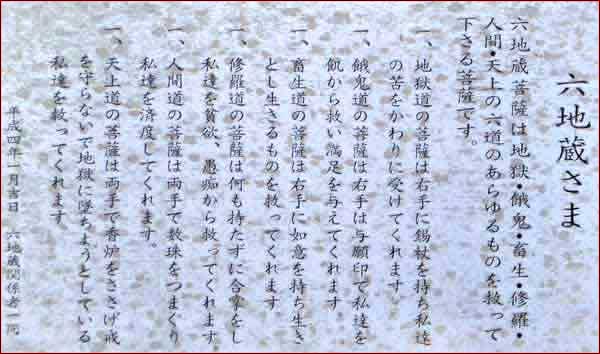 六地蔵さま
六地蔵菩薩は地獄・餓鬼・畜生・修羅・
人間・天上の六道のあらゆるものを救って
下さる菩薩です。
一、地獄道の菩薩は右手に錫杖を持ち私達
の苦をかわりに受けてくれます
一、餓鬼道の菩薩は右手は与願印で私達を
飢から救い満足を与えてくれます
一、畜生道の菩薩は右手に如意を持ち生き
とし生きるものを救ってくれます
一、修羅道の菩薩は何も持たずに合掌をし
私達を貧欲、愚痴から救ってくれます
一、人間道の菩薩は両手で数珠をつまぐり
私達を済度してくれます。
一、天上道の菩薩は両手で香炉をささげ戒
を守らないで地獄に墜ちようとしている
私達を救ってくれます
平成四年一月吉日　六地蔵関係者一同